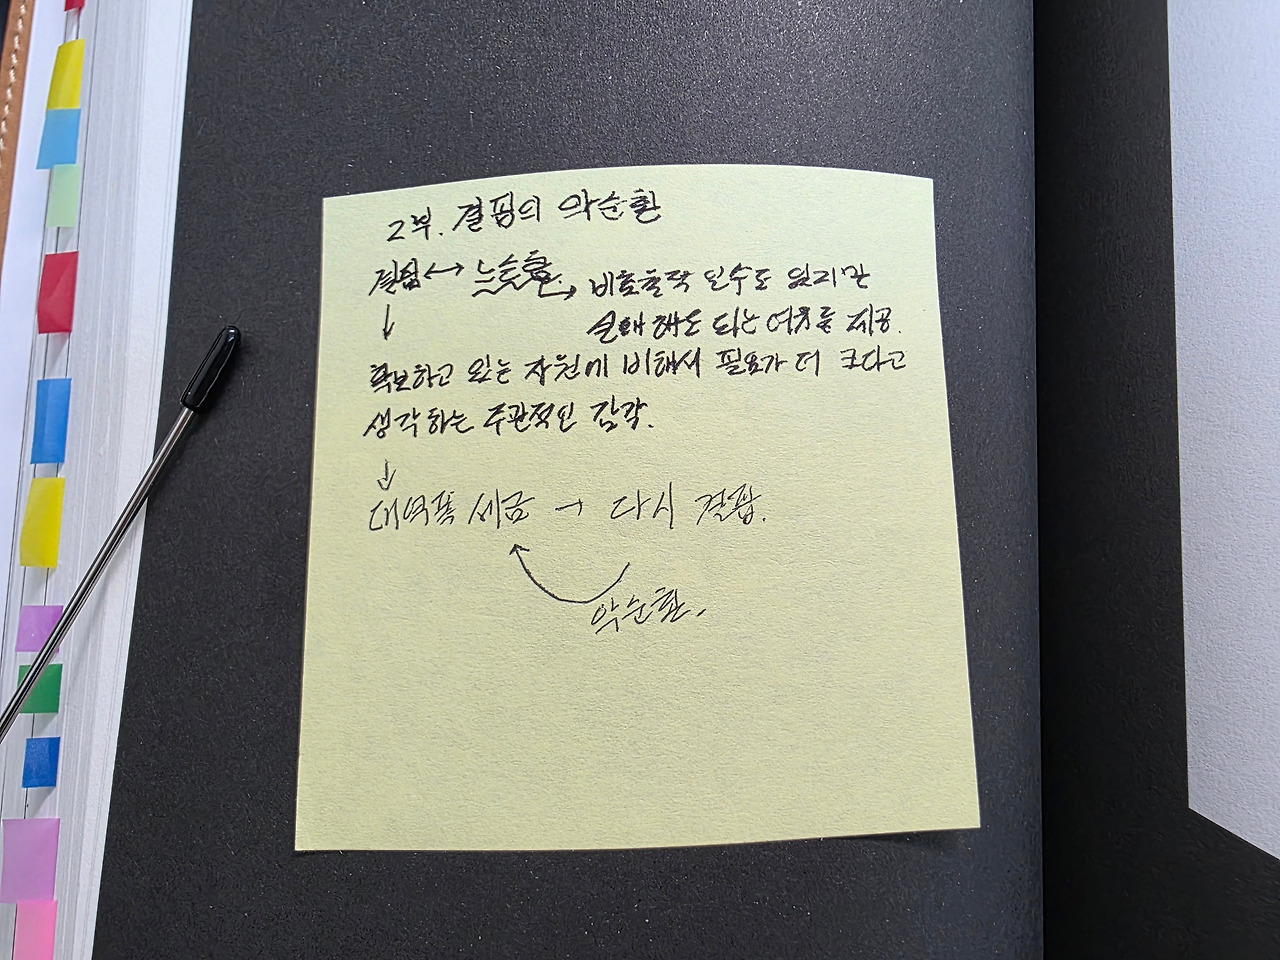 2부. 결핍의 악순환
결핍 ↔ 느슨함. → 비효율적 일수도 있지만
실패 해도 되는 여유를 제공.
↓
확보하고 있는 자원에 비해서 필요가 더 크다고
생각하는 주관적인 감각.
↓
대역폭 세금 → 다시 결핍.
악순환.